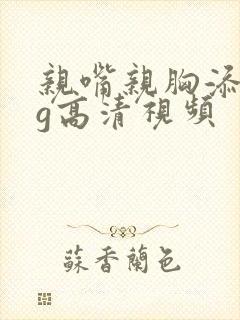 親嘴親胸添
g高清視頻
蘇香蘭色